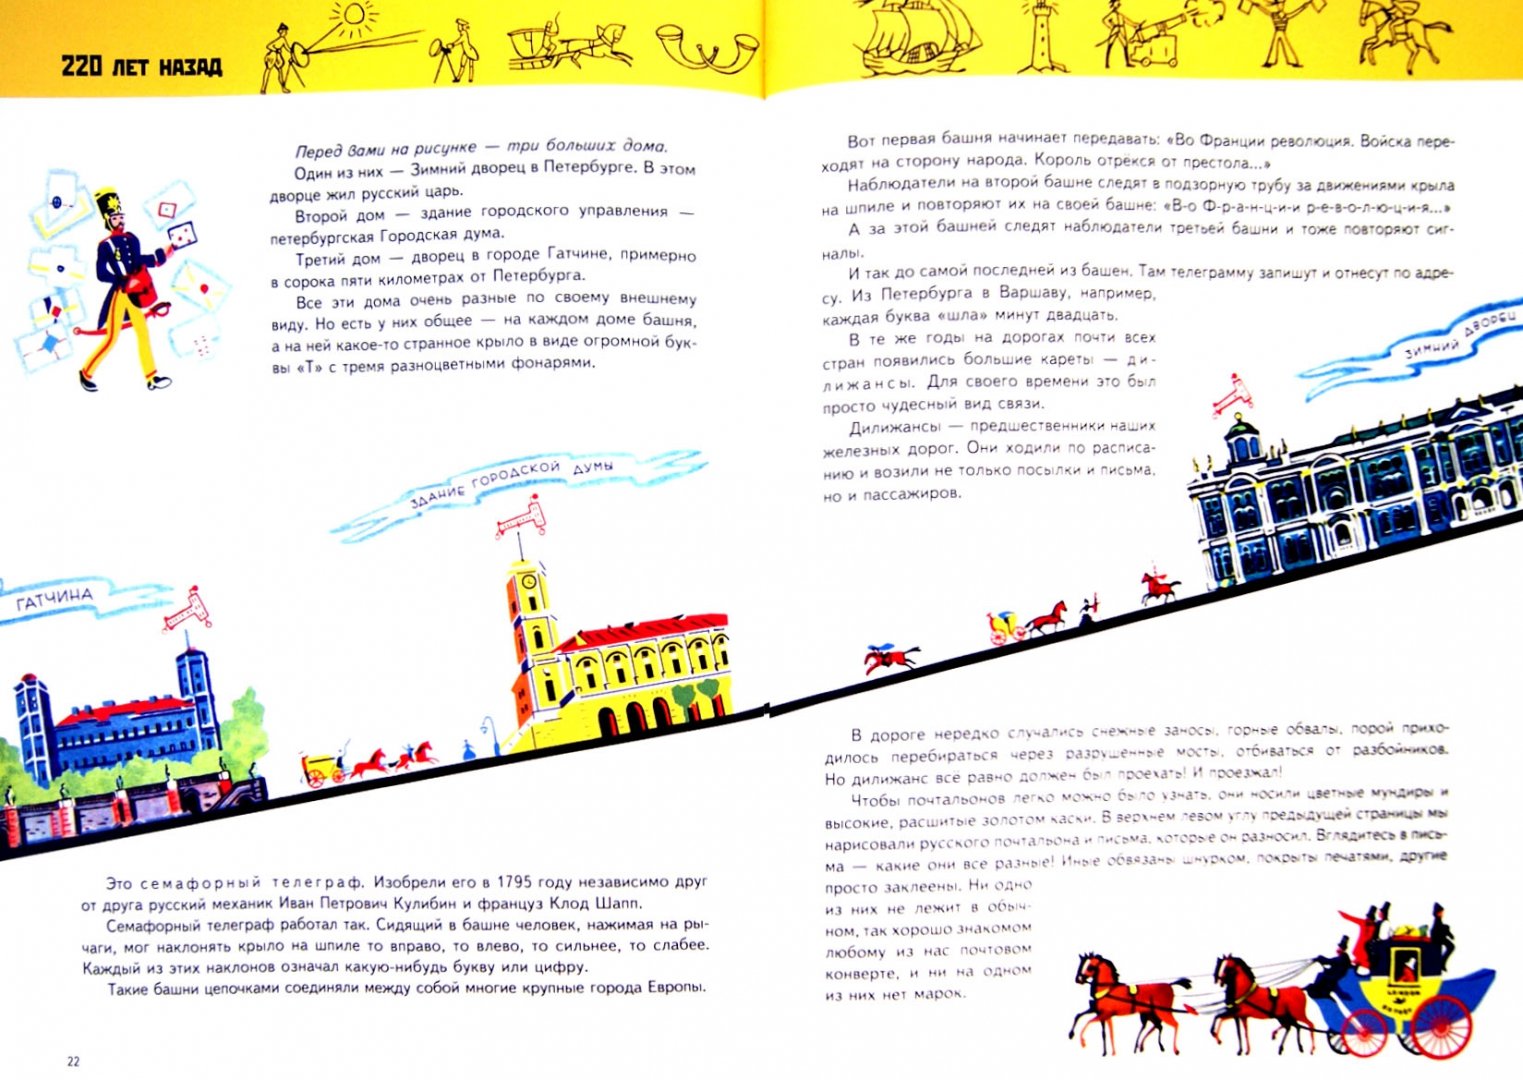 220 ЛЕТ НАЗАД
Перед вами на рисунке — три больших дома.
Один из них — Зимний дворец в Петербурге. В этом
дворце жил русский царь.
Второй дом — здание городского управления —
петербургская Городская дума.
Третий дом — дворец в городе Гатчине, примерно
в сорока пяти километрах от Петербурга.
Все эти дома очень разные по своему внешнему
виду. Но есть у них общее — на каждом доме башня,
а на ней какое-то странное крыло в виде огромной бук-
вы «Т» с тремя разноцветными фонарями.
ЗДАНИЕ ГОРОДСКОЙ ДУМЫ
ГАТЧИНА
Это семафорный телеграф. Изобрели его в 1795 году независимо друг
от друга русский механик Иван Петрович Кулибин и француз Клод Шапп.
Семафорный телеграф работал так. Сидящий в башне человек, нажимая на ры-
чаги, мог наклонять крыло на шпиле то вправо, то влево, то сильнее, то слабее.
Каждый из этих наклонов означал какую-нибудь букву или цифру.
Такие башни цепочками соединяли между собой многие крупные города Европы.
22
Вот первая башня начинает передавать: «Во Франции революция. Войска пере-
ходят на сторону народа. Король отрёкся от престола...»
Наблюдатели на второй башне следят в подзорную трубу за движениями крыла
на шпиле и повторяют их на своей башне: «В-о Ф-р-а-н-ц-и-и р-е-в-о-л-ю-ц-и-я...»
А за этой башней следят наблюдатели третьей башни и тоже повторяют сиг-
налы.
И так до самой последней из башен. Там телеграмму запишут и отнесут по адре-
су. Из Петербурга в Варшаву, например,
каждая буква «шла» минут двадцать.
В те же годы на дорогах почти всех
стран появились большие кареты — ди-
лижансы. Для своего времени это был
просто чудесный вид связи.
Дилижансы — предшественники наших
железных дорог. Они ходили по расписа-
нию и возили не только посылки и письма,
но и пассажиров.
ЗИМНИЙ ДВОРЕЦ
В дороге нередко случались снежные заносы, горные обвалы, порой прихо-
дилось перебираться через разрушенные мосты, отбиваться от разбойников.
Но дилижанс всё равно должен был проехать! И проезжал!
Чтобы почтальонов легко можно было узнать, они носили цветные мундиры и
высокие, расшитые золотом каски. В верхнем левом углу предыдущей страницы мы
нарисовали русского почтальона и письма, которые он разносил. Вглядитесь в пись-
ма — какие они все разные! Иные обвязаны шнурком, покрыты печатями, другие
просто заклеены. Ни одно
из них не лежит в обыч-
ном, так хорошо знакомом
любому из нас почтовом
конверте, и ни на одном
из них нет марок.
LONDON